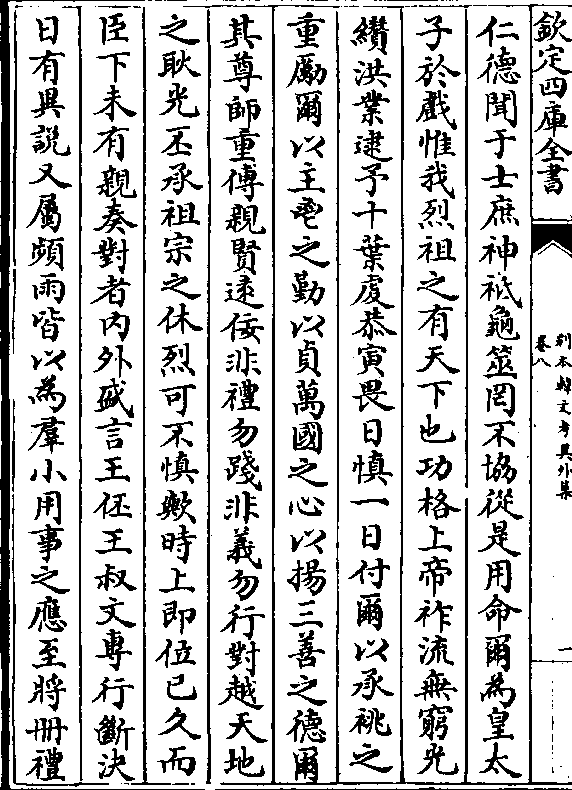 欽定四庫全書
別本韓文考異外集
卷八
一
仁德聞于士庶神祇龜筮罔不協從是用命爾為皇太
子於戲惟我烈祖之有天下也功格上帝祚流無窮光
纘洪業逮予十葉虔恭寅畏日慎一日付爾以承祧之
重勵爾以主鬯之勤以貞萬國之心以揚三善之德爾
其尊師重傅親賢逺佞非禮勿踐非義勿行對越天地
之耿光丕承祖宗之休烈可不慎歟時上即位已久而
臣下未有親奏對者内外盛言王伾王叔文專行斷決
日有異説又屬頻雨皆以為羣小用事之應至將冊禮